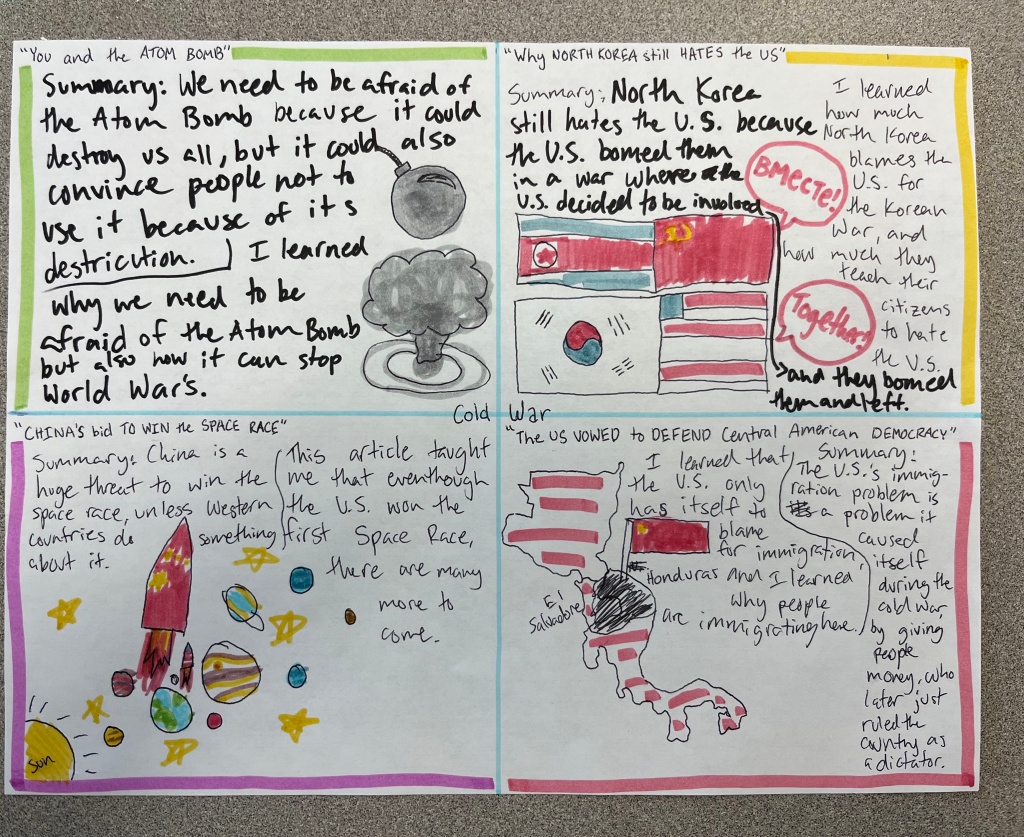 "You and the ATOM BOMB"
Summary: We need to be afraid of
the Atom Bomb because it could
destroy us all, but it could also
convince people not to
use it because of it s
destricution.
I learned
why we need to be
afraid of the Atom Bomb
but also how it can stop
World War's.
"Why NORTH KOREA still HATES the US"
Summary: North Korea
still hates the U.S. because
the U.S. bomed them
in a war where the
U.S. decided to be involved
and they bomed
them and left.
I learned
how much
North Korea
blames the
U.S. for
the Korean
War, and
how much they
teach their
citizens
to hate
the U.S.
ВМЕСТЕ!
Together!
Cold War
"CHINA's bid TO WIN the SPACE RACE"
Summary: China is a
huge threat to win the
space race, unless Western
countries do something
about it.
This article taught
me that eventhough
the U.S. won the
first Space Race,
there are many
more to
come.
Sun
"The US VOWED to DEFEND Central American DEMOCRACY"
I learned that
the U.S. only
has itself to
blame
for immigration,
and I learned
why people
are immigrating here.
Honduras
El
Salvadore
Summary:
The U.S.'s immig-
ration problem is
a problem it
caused
itself
during the
cold war,
by giving
people
money, who
later just
ruled the
country as
a dictator.